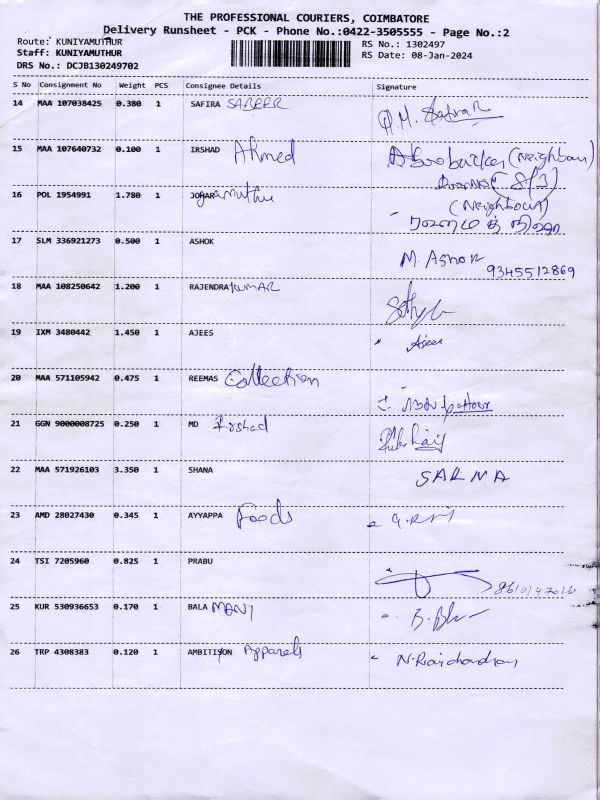 THE PROFESSIONAL COURIERS, COIMBATORE
Delivery Runsheet - PCK - Phone No.:0422-3505555 - Page No.:2
Route: KUNIYAMUTHUR
Staff: KUNIYAMUTHUR
DRS No.: DCJB130249702
RS No.: 1302497
RS Date: 08-Jan-2024
S No Consignment No Weight PCS Consignee Details Signature
14 MAA 107038425 0.380 1 SAFIRA SABEER
15 MAA 107640732 0.100 1 IRSHAD Ahmed (Neighbour)
16 POL 1954991 1.780 1 (Neighbour)
17 SLM 336921273 0.500 1 ASHOK M. Ashok
9345512869
18 MAA 108250642 1.200 1 RAJENDRA KUMAR
19 IXM 3480442 1.450 1 AJEES Ajees
20 MAA 571105942 0.475 1 REEMAS Collection
21 GGN 9000008725 0.250 1 MD Irshad
22 MAA 571926103 3.350 1 SHANA SARNA
23 AMD 28027430 0.345 1 AYYAPPA Foods
24 TSI 7205960 0.825 1 PRABU
25 KUR 530936653 0.170 1 BALA MANI
26 TRP 4308383 0.120 1 AMBITION Apparels